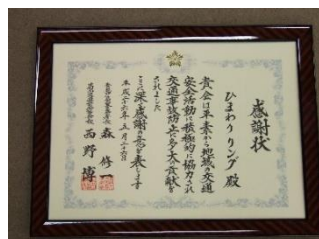 感謝状
ひまわりリング 殿
貴会は平素から地域の交通
安全活動に積極的に協力され
交通事故防止に多大な貢献を
されました
ここに深く感謝の意を表します
平成二十六年五月二十六日
森 修一
西野 博